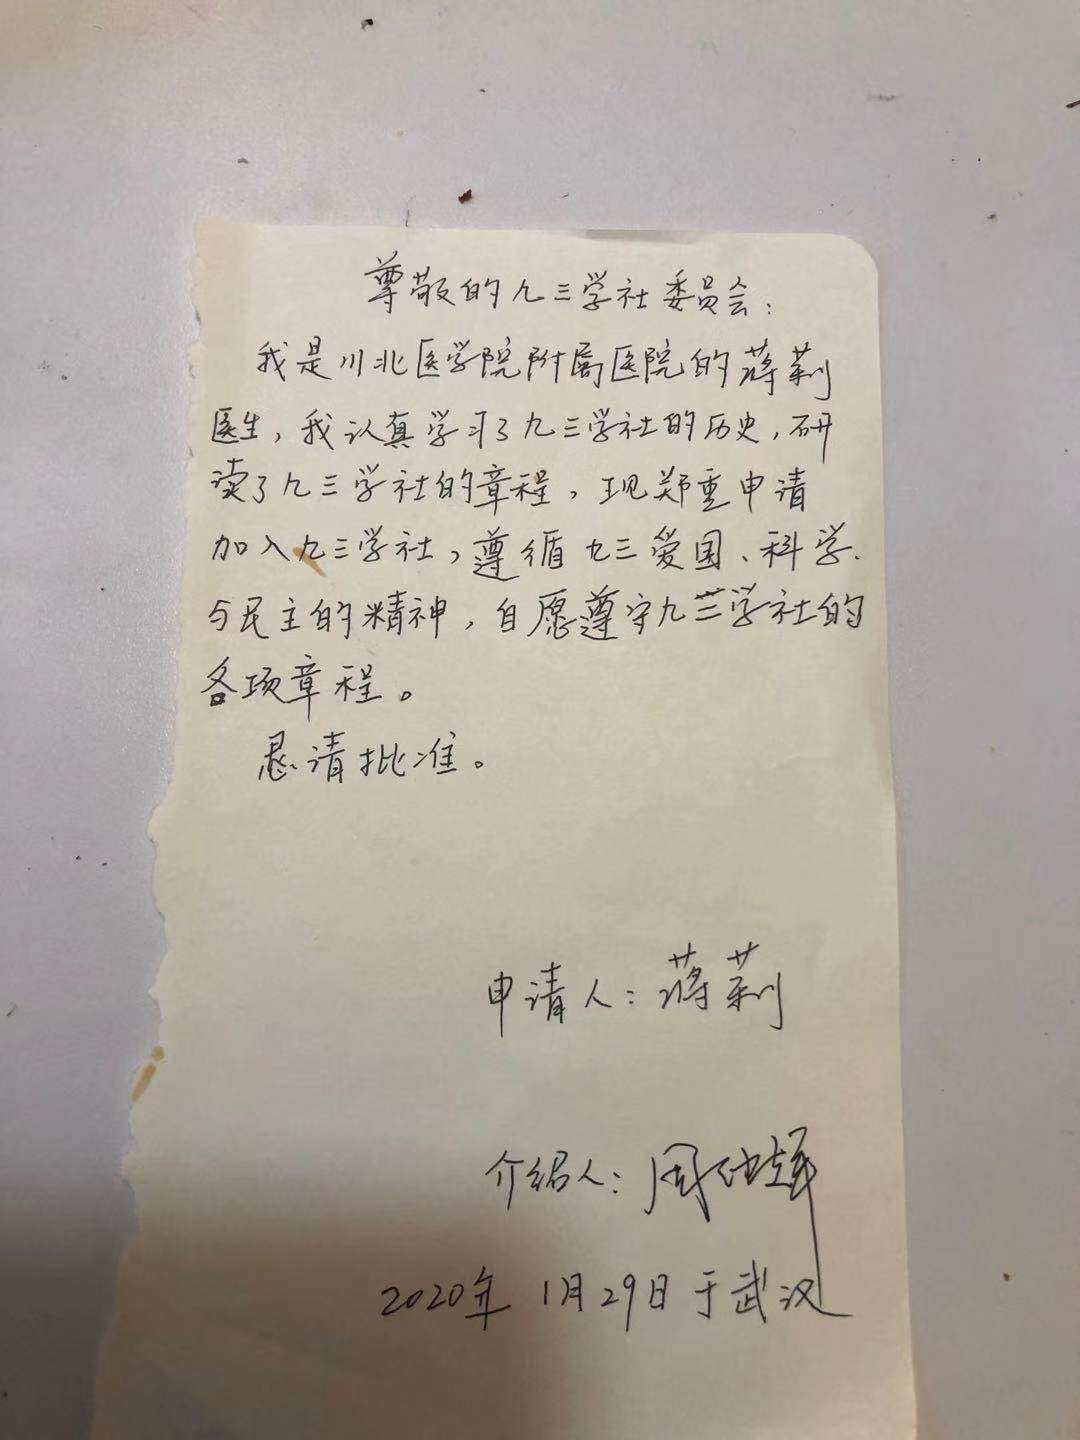 尊敬的九三学社委员会:
我是川北医学院附属医院的蒋莉
医生,我认真学习了九三学社的历史,研
读了九三学社的章程,现郑重申请
加入九三学社,遵循九三爱国、科学、
与民主的精神,自愿遵守九三学社的
各项章程。
恳请批准。
申请人:蒋莉
介绍人:周
2020年1月29日于武汉